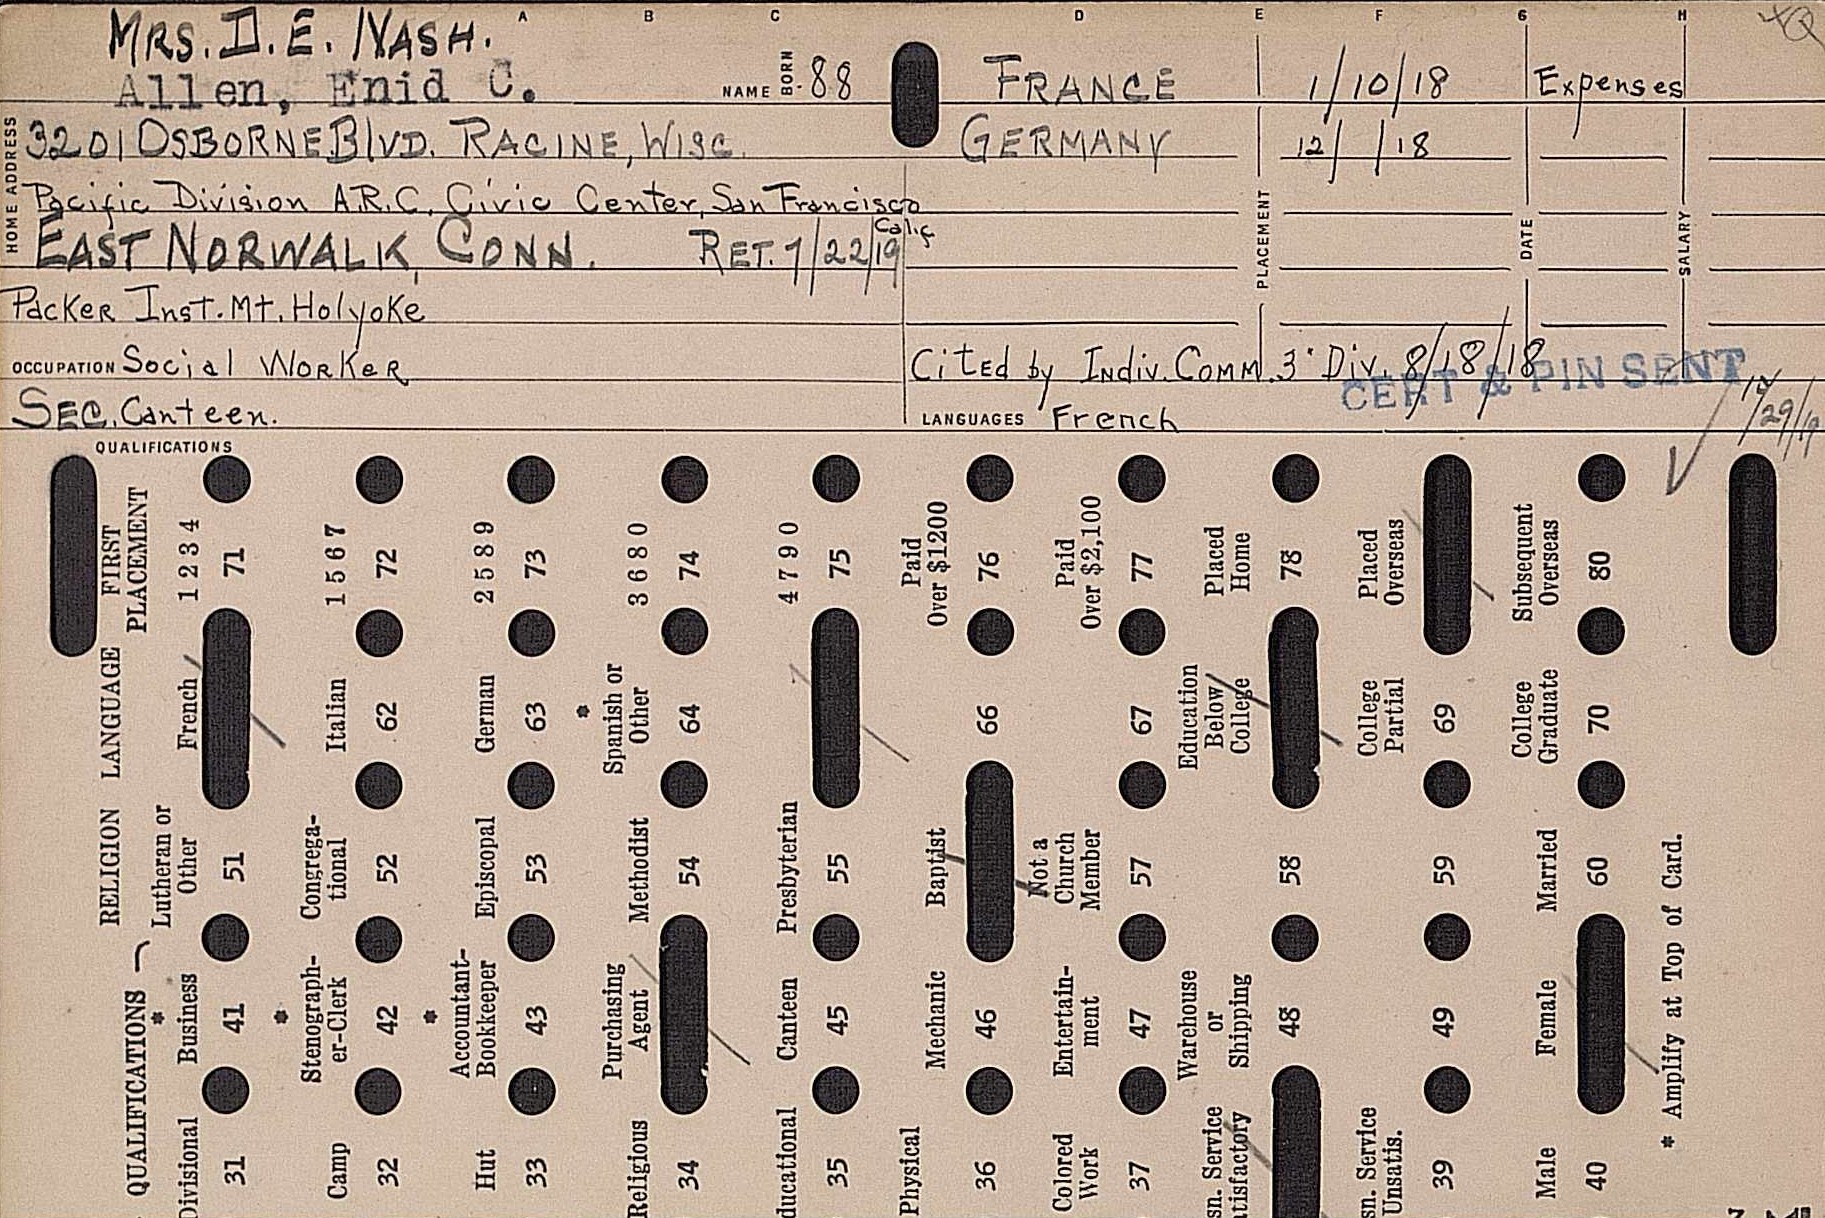 A B C D E F G H
MRS. D. E. NASH.
Allen, Enid C. NAME BORN -88 FRANCE 1/10/18 Expenses
HOME ADDRESS 3201 OSBORNE BLVD. RACINE, WISC. GERMANY 12/ /18
Pacific Division A.R.C. Civic Center, San Francisco Calif
EAST NORWALK, CONN. RET. 7/22/19 PLACEMENT DATE SALARY
Packer Inst. Mt. Holyoke
OCCUPATION Social Worker Cited by Indiv. Comm. 3 Div. 8/18/18
CERT & PIN SENT
SEC. Canteen. LANGUAGES French
QUALIFICATIONS
FIRST PLACEMENT
1 2 3 4 71
1 5 6 7 72
2 5 8 9 73
3 6 8 0 74
4 7 9 0 75
Paid Over $1200 76
Paid Over $2,100 77
Placed Home 78
Placed Overseas
Subsequent Overseas 80
LANGUAGE
French
Italian 62
German 63
* Spanish or Other 64
66
67
Education Below College
College Partial 69
College Graduate 70
RELIGION
Lutheran or Other 51
Congregational 52
Episcopal 53
Methodist 54
Presbyterian 55
Baptist
Not a Church Member 57
58
59
Married 60
QUALIFICATIONS
* Business 41
* Stenographer-Clerk 42
* Accountant-Bookkeeper 43
Purchasing Agent
Canteen 45
Mechanic 46
Entertainment 47
Warehouse or Shipping 48
49
Female
* Amplify at Top of Card.
Divisional 31
Camp 32
Hut 33
Religious 34
ducational 35
Physical 36
Colored Work 37
sn. Service atisfactory
sn. Service Unsatis. 39
Male 40